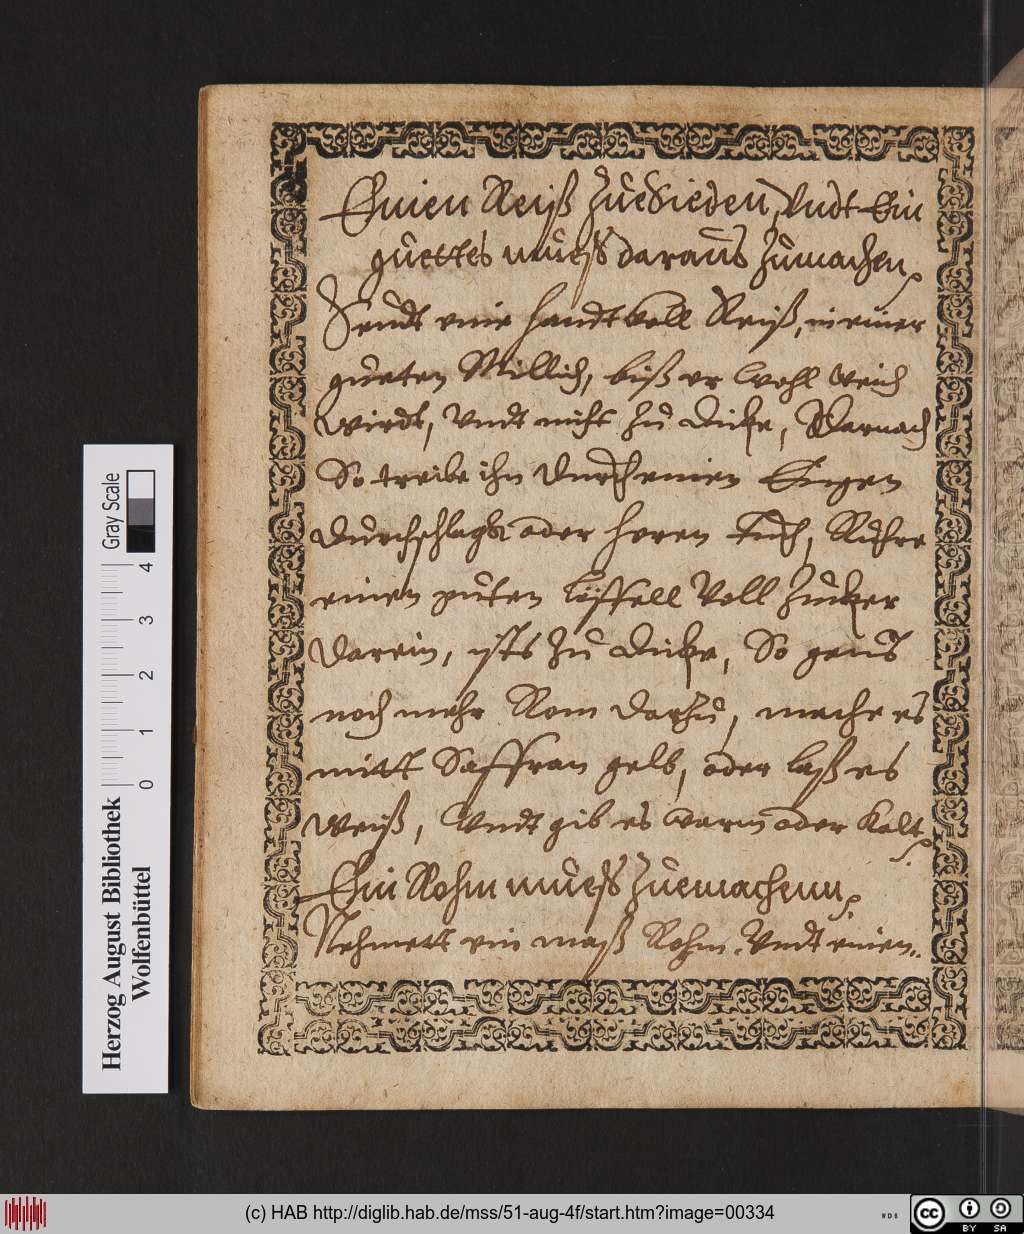 Einen Reiß Zue Sieden, Vndt Ein
guettes muess daraus Zumachen.
Seudt eine handt voll Reiß, in einer
gueten Millich, biß er wohl weich
wirdt, Vndt nicht zu dicke, Darnach
So treibe ihn durch einen Engen
durchschlagk oder heren tuch, Ruhre
einen guten löffell Voll Zucker
darein, ists zu dicke, So geus
noch mehr Rom darzu, mache es
mitt Saffran gelb, oder laß es
weiß, Vndt gib es warm oder kalt.
Ein Rohm muess Zuemachenn.
Nehmett ein maß Rohm. Vndt einen..
Gray Scale
0 1 2 3 4
Herzog August Bibliothek
Wolfenbüttel
(c) HAB http://diglib.hab.de/mss/51-aug-4f/start.htm?image=00334
WDB
cc BY SA